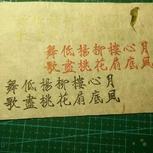 舞低楊柳樓心月
歌盡桃花扇底風
舞低楊柳樓心月
歌盡桃花扇底風